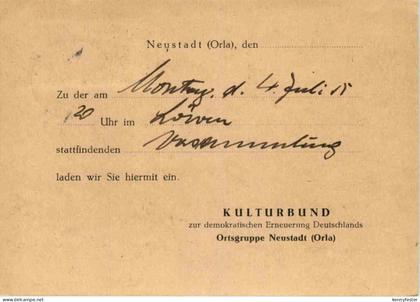 Neustadt (Orla), den
Zu der am Montag, d. 4. Juli
20 Uhr im Löwen
stattfindenden Versammlung
laden wir Sie hiermit ein.
KULTURBUND
zur demokratischen Erneuerung Deutschlands
Ortsgruppe Neustadt (Orla)